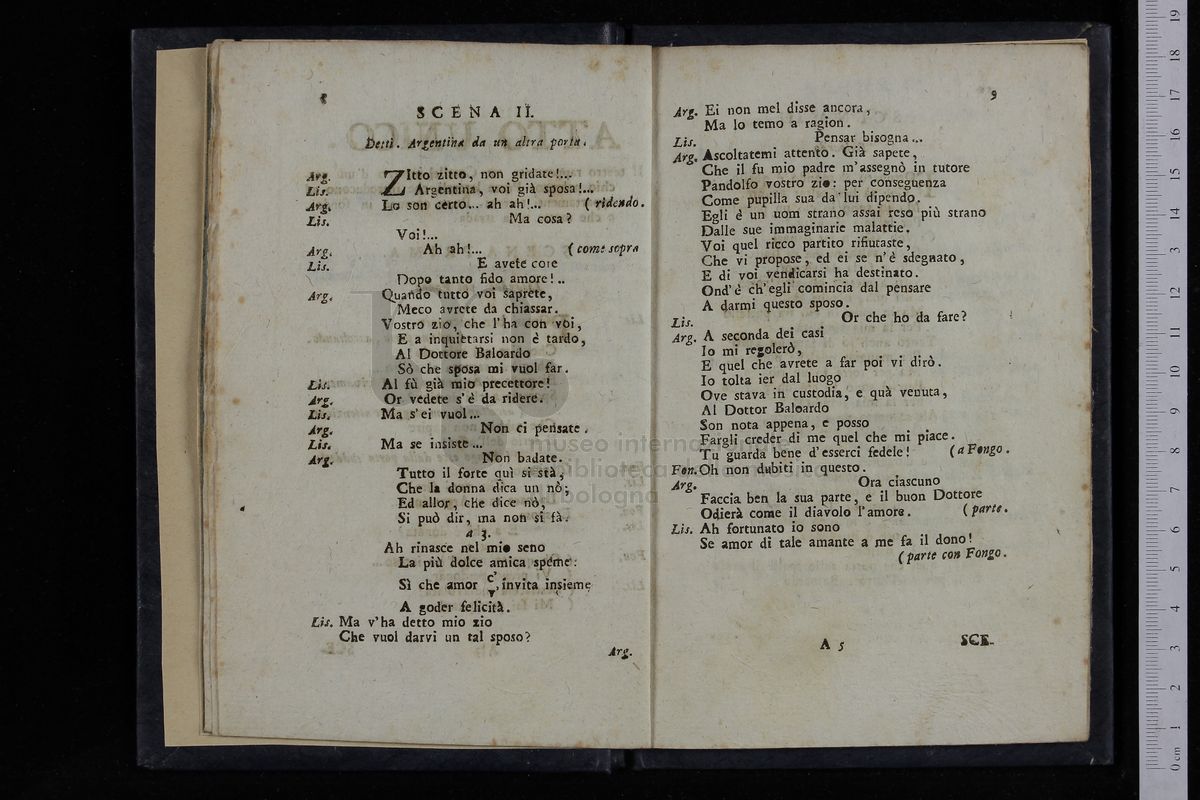 8
SCENA II.
Detti. Argentina da un altra porta.
Arg. ZItto zitto, non gridate!...
Lis. Argentina, voi già sposa!...
Arg. Lo son certo... ah ah!... (ridendo.
Lis. Ma cosa?
Voi!...
Arg. Ah ah!... (come sopra
Lis. E avete core
Dopo tanto fido amore!..
Arg. Quando tutto voi saprete,
Meco avrete da chiassar.
Vostro zio, che l'ha con voi,
E a inquietarsi non è tardo,
Al Dottore Baloardo
Sò che sposa mi vuol far.
Lis. Al fù già mio precettore!
Arg. Or vedete s'è da ridere.
Lis. Ma s'ei vuol...
Arg. Non ci pensate.
Lis. Ma se insiste...
Arg. Non badate.
Tutto il forte quì si stà,
Che la donna dica un nò;
Ed allor, che dice nò,
Si può dir, ma non si fà.
a 3.
Ah rinasce nel mio seno
La più dolce amica speme:
Sì che amor c'/v' invita insieme
A goder felicità.
Lis. Ma v'ha detto mio zio
Che vuol darvi un tal sposo?
Arg.
9
Arg. Ei non mel disse ancora,
Ma lo temo a ragion.
Lis. Pensar bisogna...
Arg. Ascoltatemi attento. Già sapete,
Che il fu mio padre m'assegnò in tutore
Pandolfo vostro zio: per conseguenza
Come pupilla sua da lui dipendo.
Egli è un uom strano assai reso più strano
Dalle sue immaginarie malattie.
Voi quel ricco partito rifiutaste,
Che vi propose, ed ei se n'è sdegnato,
E di voi vendicarsi ha destinato.
Ond'è ch'egli comincia dal pensare
A darmi questo sposo.
Lis. Or che ho da fare?
Arg. A seconda dei casi
Io mi regolerò,
E quel che avrete a far poi vi dirò.
Io tolta ier dal luogo
Ove stava in custodia, e quà venuta,
Al Dottor Baloardo
Son nota appena, e posso
Fargli creder di me quel che mi piace.
Tu guarda bene d'esserci fedele! (a Fongo.
Fon. Oh non dubiti in questo.
Arg. Ora ciascuno
Faccia ben la sua parte, e il buon Dottore
Odierà come il diavolo l'amore. (parte.
Lis. Ah fortunato io sono
Se amor di tale amante a me fa il dono!
(parte con Fongo.
A 5 SCE-